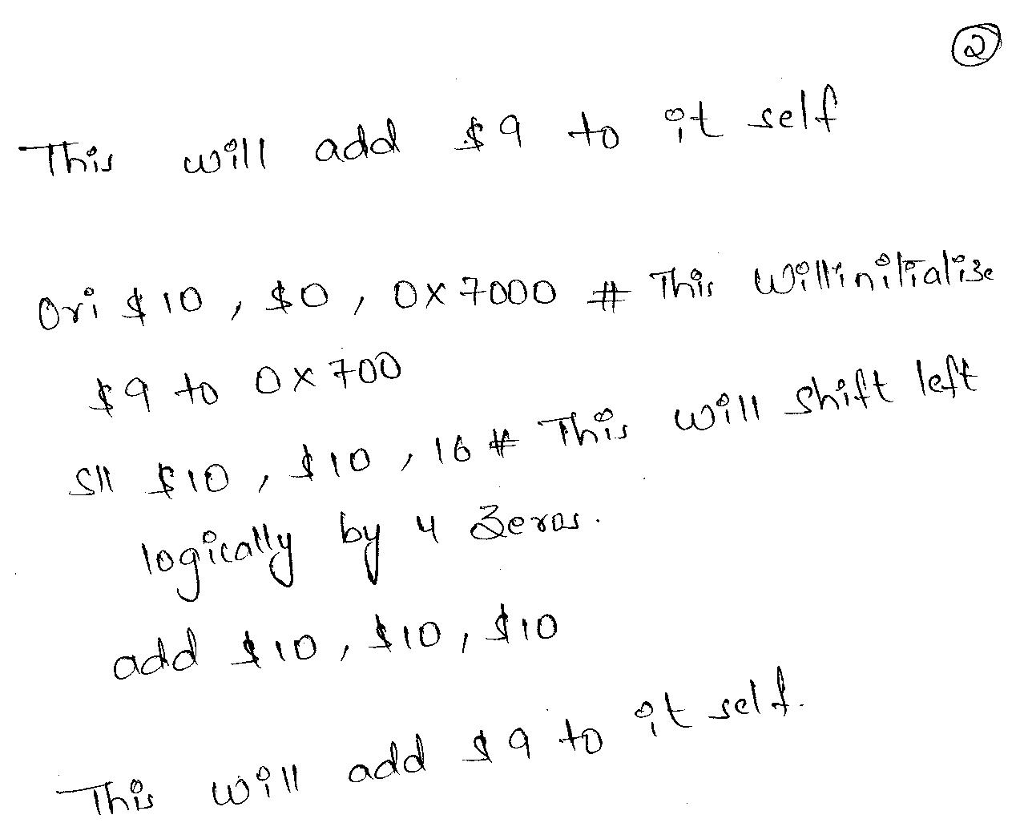 ②
This will add $9 to it self
Ori $10, $0, 0X7000 # This will initialise
$9 to 0X700
Sll $10, $10, 16 # This will shift left
logically by 4 Zeros.
add $10, $10, $10
This will add $9 to it self.